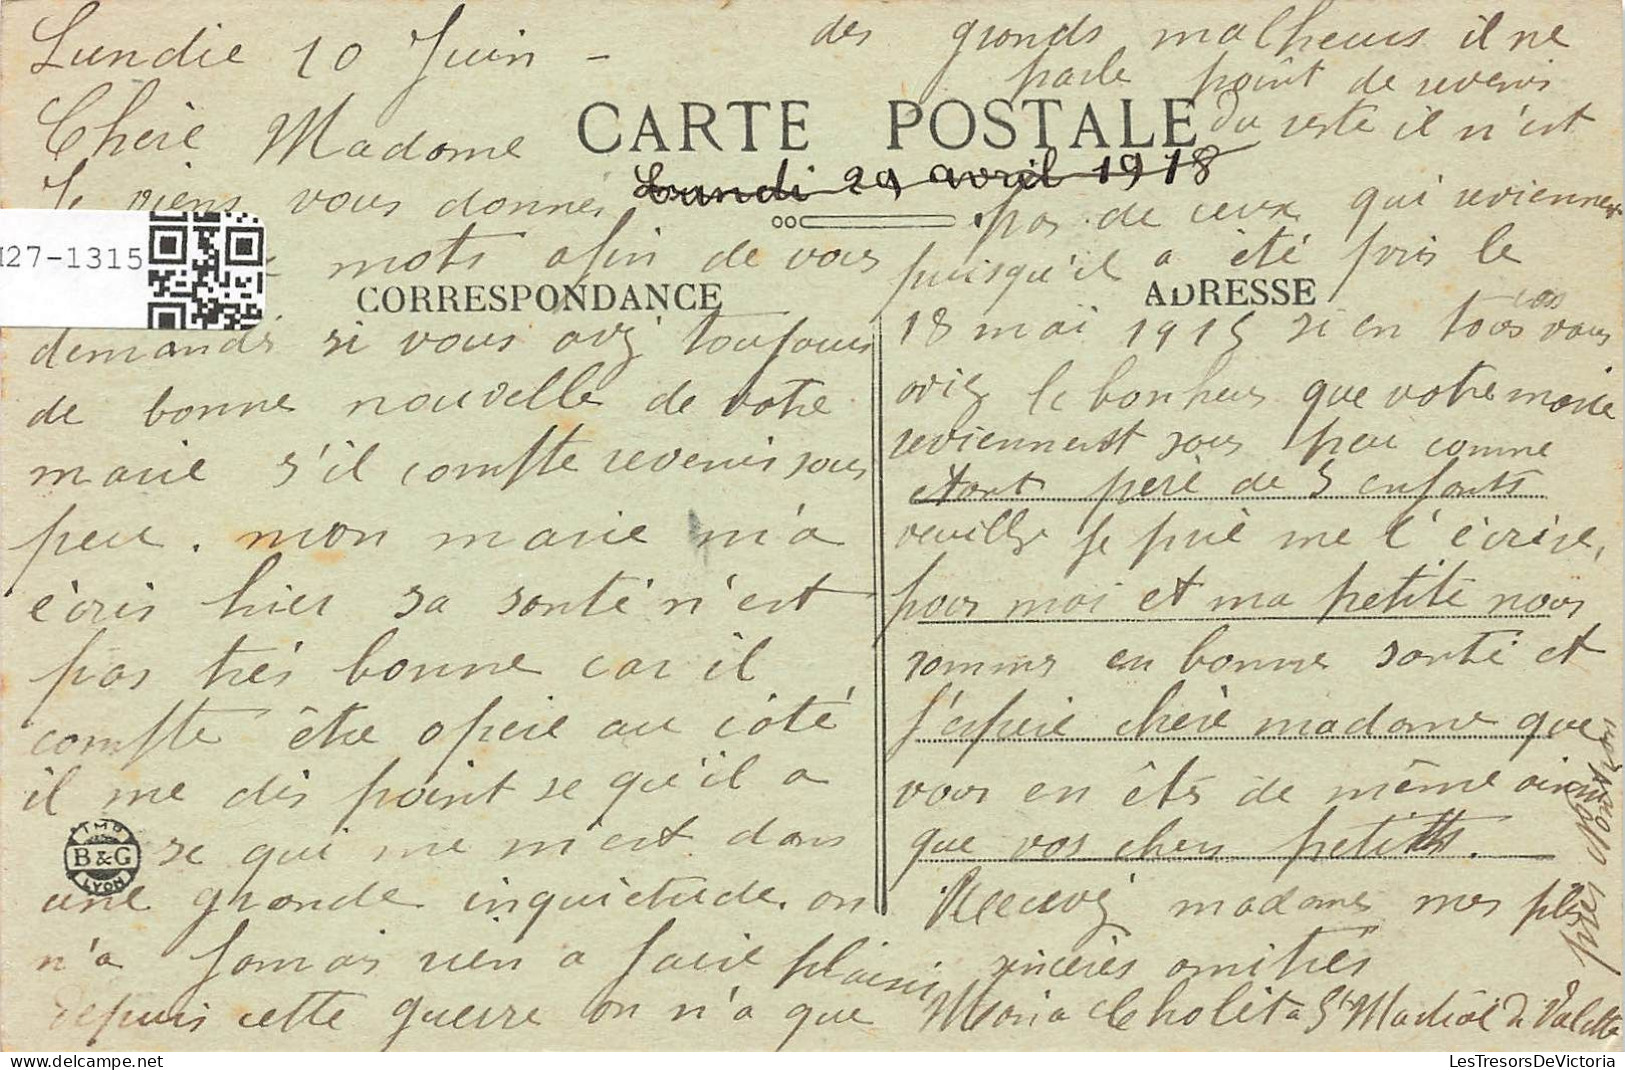 Lundie 10 Juin -
Chére Madame
CARTE POSTALE
Lundi 29 avril 1918
Je viens vous donnés
mots afin de vous
CORRESPONDANCE
demandés si vous avez toujours
de bonne nouvelle de votre
marie s'il compte revenir sous
peu. mon marie m'a
écris hier sa santé n'est
pas trés bonne car il
compte être opéré au côté
il me dis point se qu'il a
se qui me m'est dans
une grande inquietude. on
n'a jamais rien a faire plaisir
depuis cette guerre on n'a que
des grands malheurs il ne
parle point de revenir
Du reste il n'est
pas de ceux qui reviennes
puisqu'il a été pris le
ADRESSE
18 mai 1915 si en tous cas vous
aviez le bonheur que votre marie
reviennent sous peu comme
etant père de 5 enfants
veuillez je prié me l'écrire,
pour moi et ma petite nous
sommes en bonne santé et
j'espére chère madame que
vous en êtes de même ainsi
que vos chers petits.
Recevez madame mes plus
sincéres amitiés
Maria Cholet a St Martial de Valette
près Nontron
H27-1315
IMP
B&G
LYON
LesTresorsDeVictoria